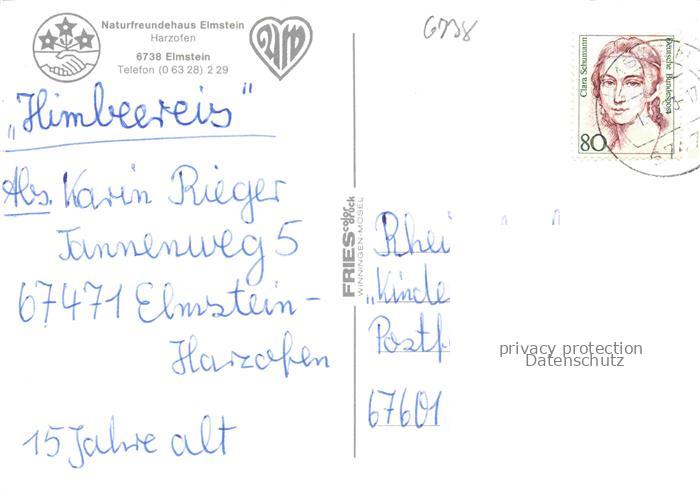 Naturfreundehaus Elmstein
Harzofen
6738 Elmstein
Telefon (0 63 28) 2 29
6738
Clara Schumann
Deutsche Bundespost
80
„Himbeereis"
Abs. Karin Rieger
Tannenweg 5
67471 Elmstein-
Harzofen
15 Jahre alt
FRIES color druck
WINNINGEN-MOSEL
Rhei
„Kinde
Postf
67601
privacy protection
Datenschutz